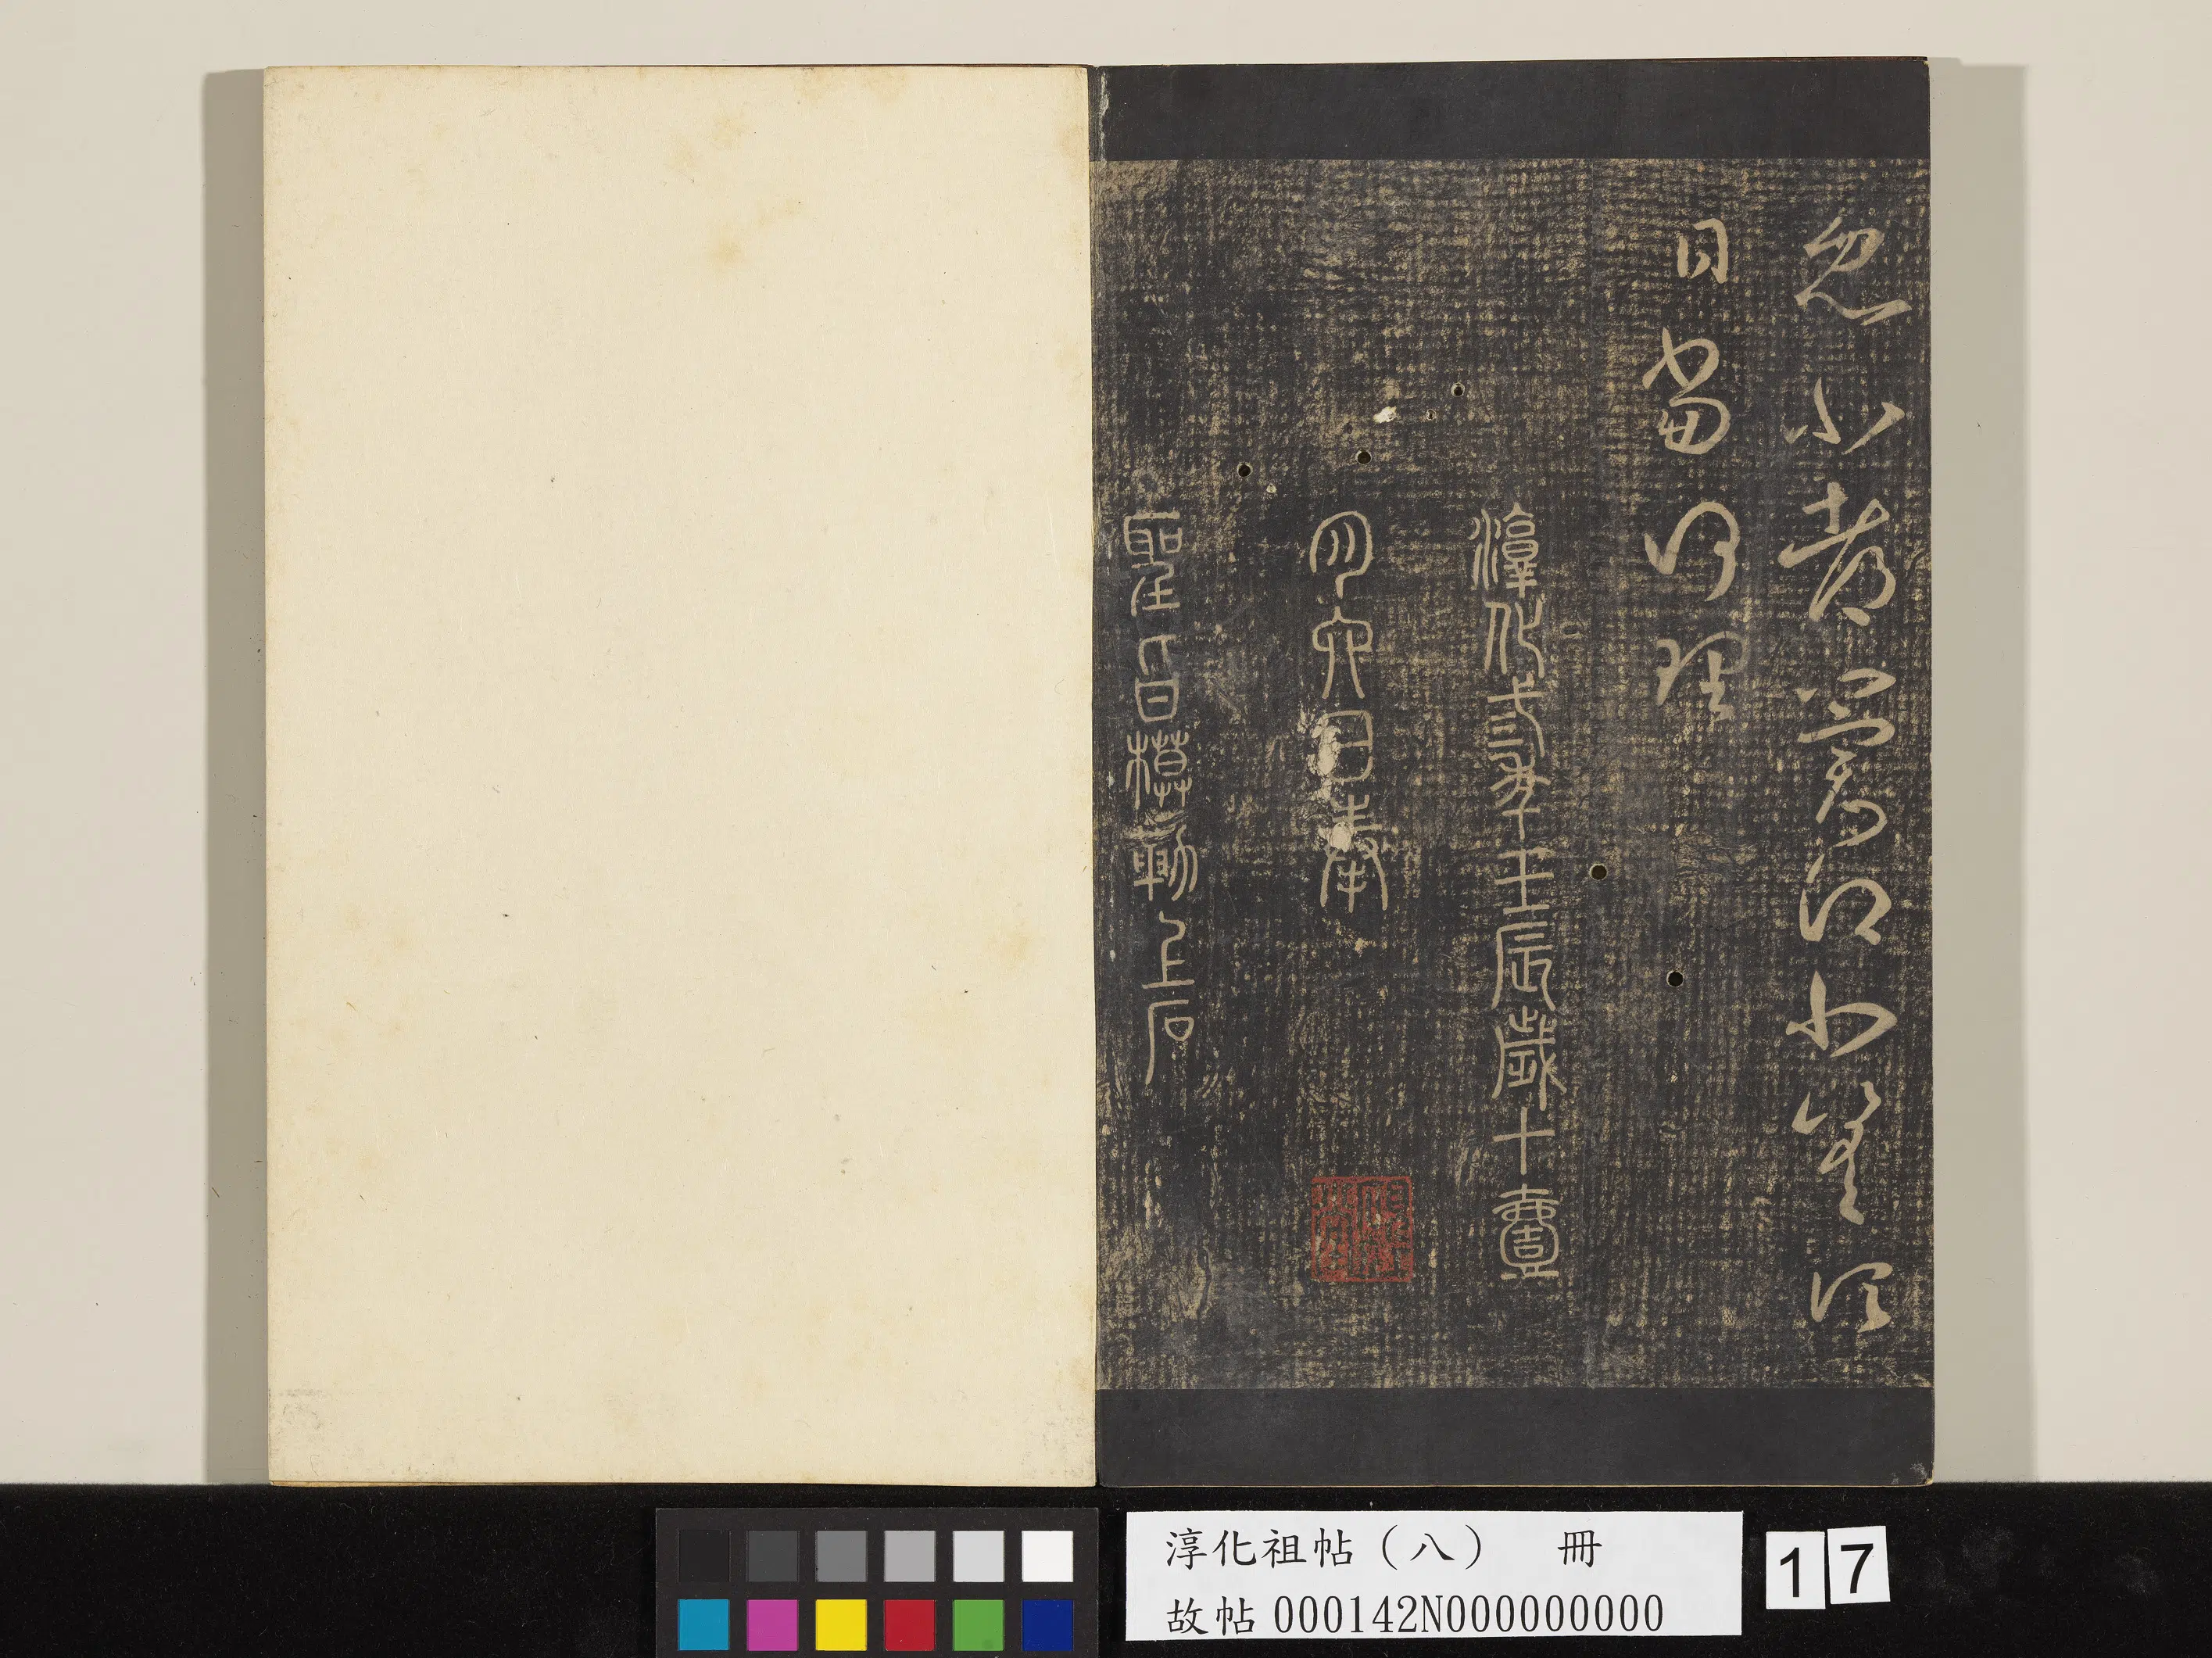 忽小
日當何理
淳化叁年壬辰歲十壹
月六日奉
聖旨模勒上石
淳化祖帖（八） 冊
故帖000142N000000000
17